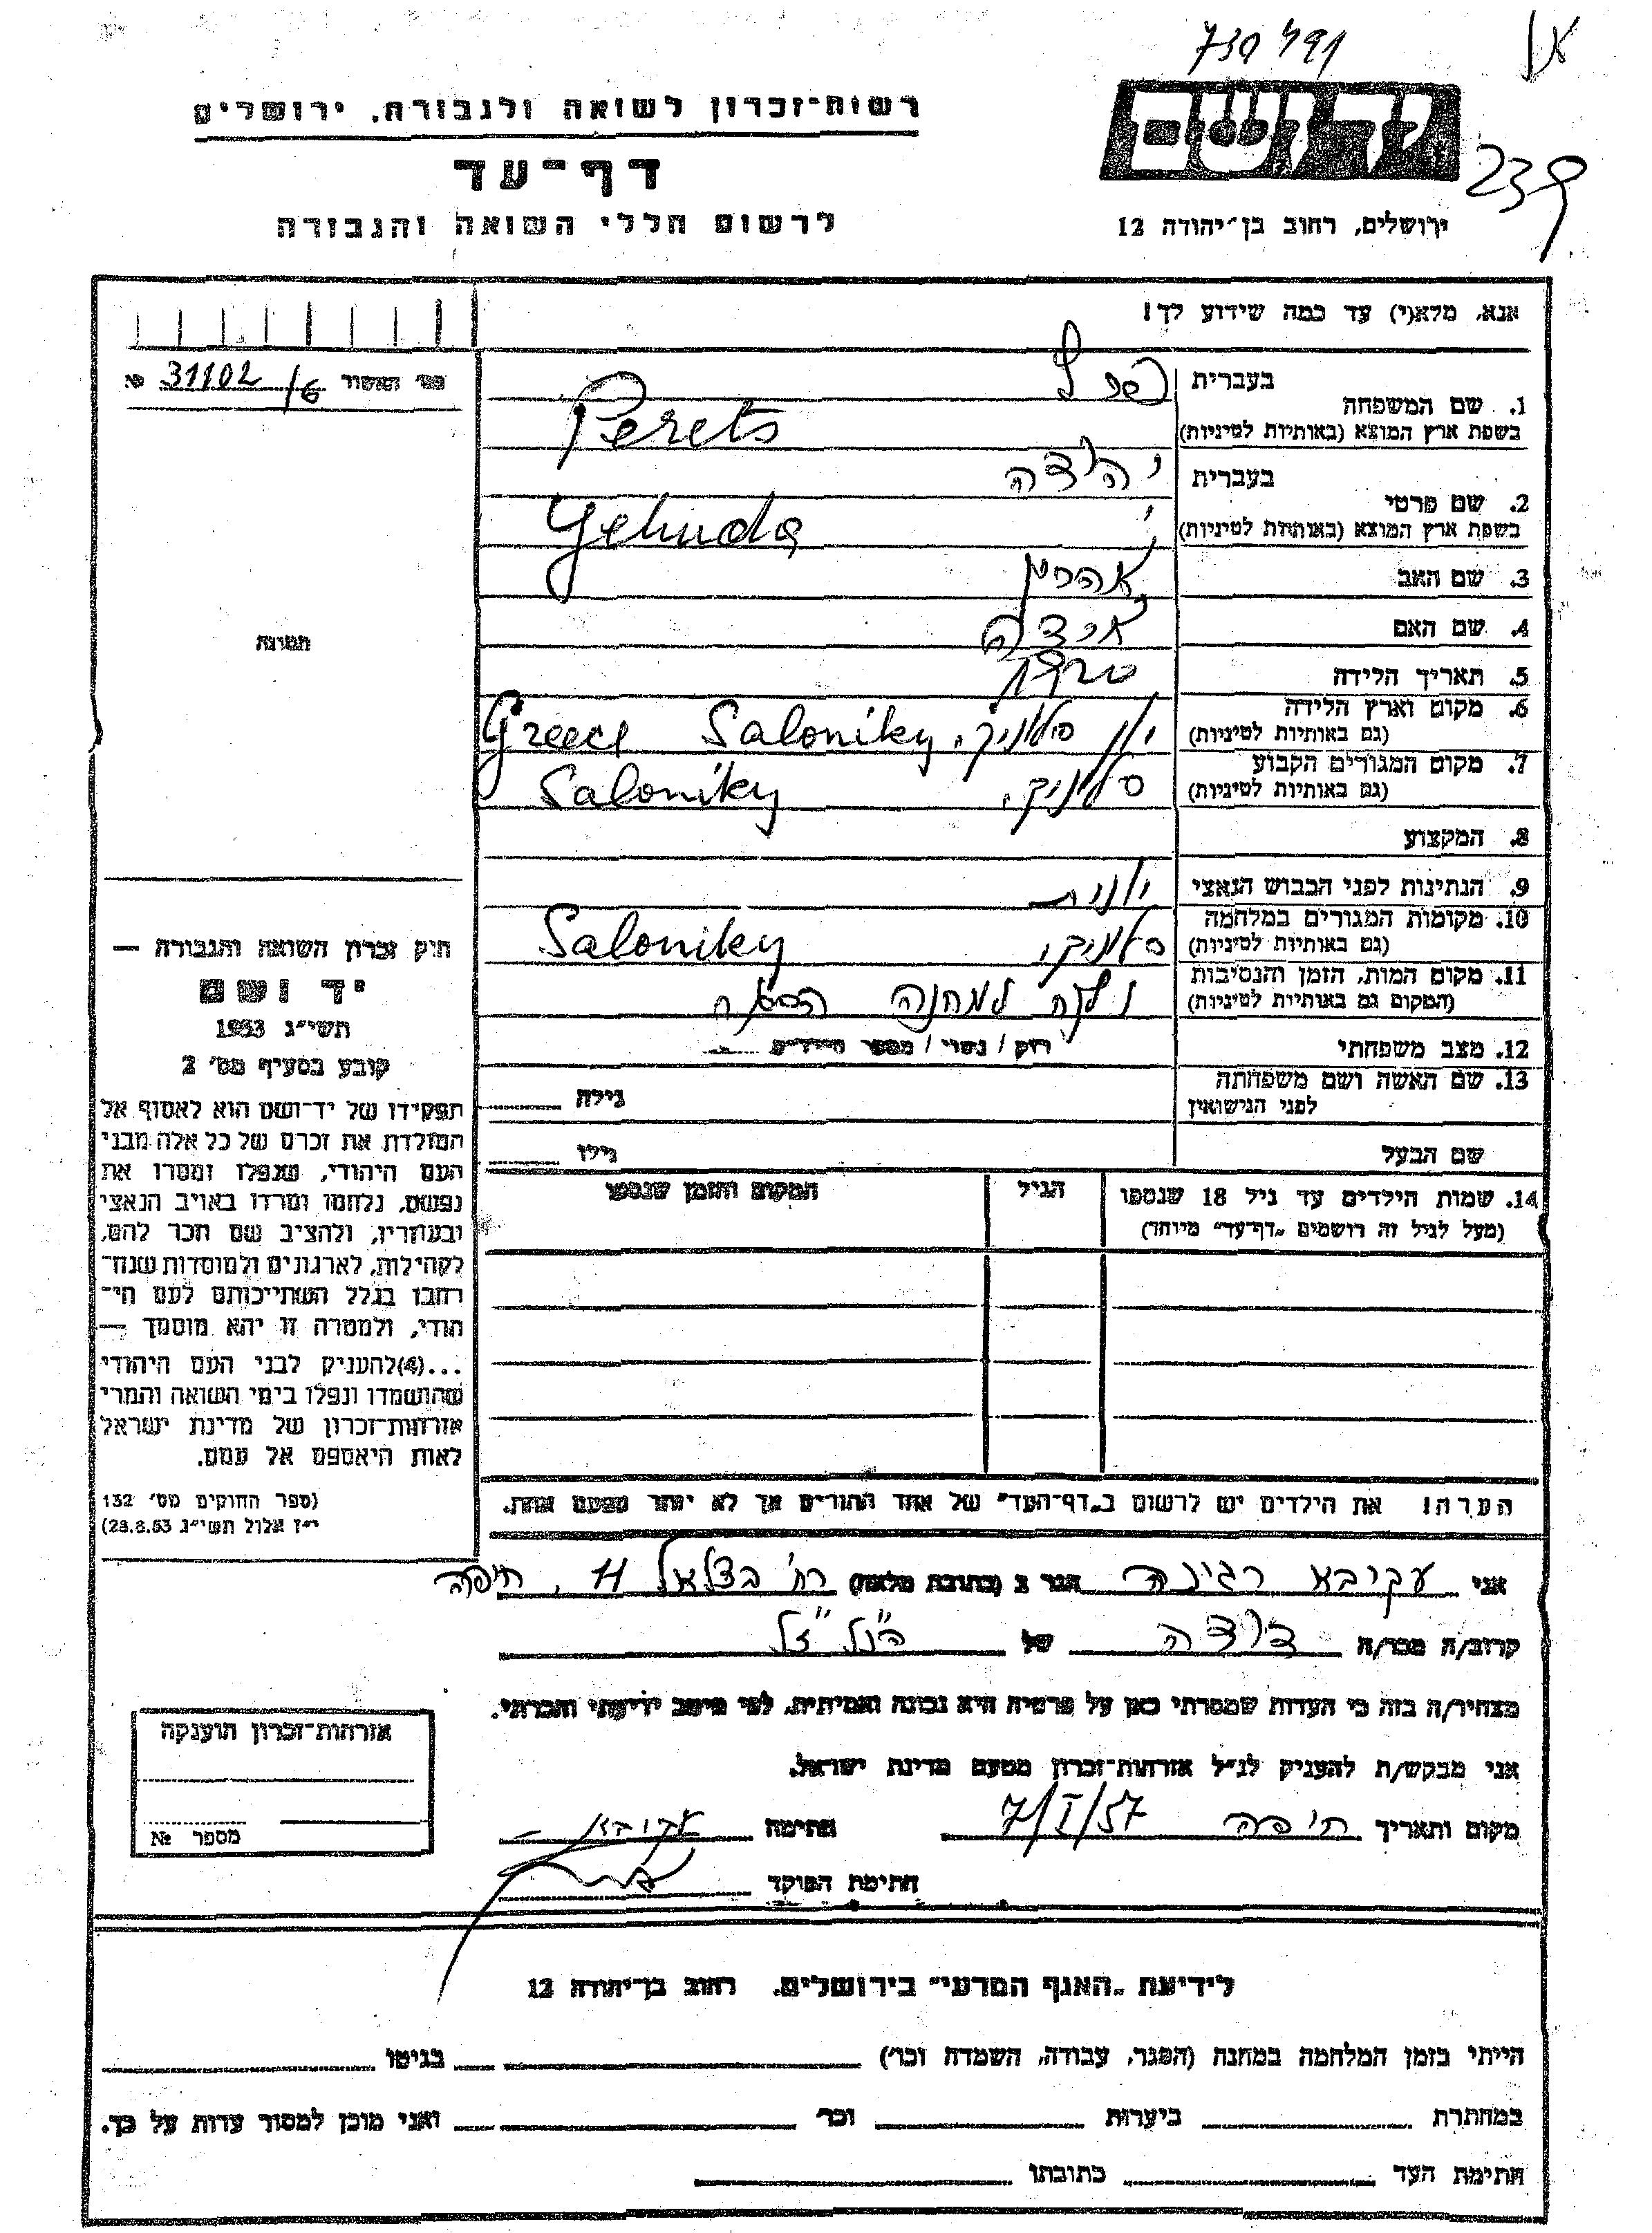 רשות-זכרון לשואה ולגבורה, ירושלים
דף-עד
לרשום חללי השואה והגבורה
יד ושם
ירושלים, רחוב בן-יהודה 12
239
אנא, מלא(י) עד כמה שידוע לך!
מס' האשור 31102/6 №
1. שם המשפחה
בעברית פרץ
בשפת ארץ המוצא (באותיות לטיניות) Perets
2. שם פרטי
בעברית יהודה
בשפת ארץ המוצא (באותיות לטיניות) Yehuda
3. שם האב אהרון
4. שם האם
5. תאריך הלידה
6. מקום וארץ הלידה יון סלוניקי. Saloniky Greece
(גם באותיות לטיניות)
7. מקום המגורים הקבוע סלוניקי. Saloniky
(גם באותיות לטיניות)
8. המקצוע
9. הנתינות לפני הכבוש הנאצי יונית
10. מקומות המגורים במלחמה סלוניקי. Saloniky
(גם באותיות לטיניות)
11. מקום המות, הזמן והנסיבות נלקח למחנה
(המקום גם באותיות לטיניות)
12. מצב משפחתי רוק / נשוי / מספר הילדים
13. שם האשה ושם משפחתה לפני הנישואין גילה
שם הבעל גילו
14. שמות הילדים עד גיל 18 שנספו הגיל המקום והזמן שנספו
(מעל לגיל זה רושמים „דף-עד" מיוחד)
הערה! את הילדים יש לרשום ב„דף-העד" של אחד ההורים אך לא יותר מפעם אחת.
תמונה
חוק זכרון השואה והגבורה —
יד ושם
תשי"ג 1953
קובע בסעיף מס' 2
תפקידו של יד-ושם הוא לאסוף אל
המולדת את זכרם של כל אלה מבני
העם היהודי, שנפלו ומסרו את
נפשם, נלחמו ומרדו באויב הנאצי
ובעוזריו, ולהציב שם וזכר להם,
לקהילות, לארגונים ולמוסדות שנח-
רבו בגלל השתייכותם לעם הי-
הודי, ולמטרה זו יהא מוסמך —
...(4) להעניק לבני העם היהודי
שהושמדו ונפלו בימי השואה והמרי
אזרחות-זכרון של מדינת ישראל
לאות היאספם אל עמם.
(ספר החוקים מס' 132
י"ז אלול תשי"ג 28.8.53)
אני עקיבא רגינה הגר ב (כתובת מלאה) רח' בצלאל 11, חיפה
קרוב/ה מכר/ה דודה של הנ"ל ז"ל
מצהיר/ה בזה כי העדות שמסרתי כאן על פרטיה היא נכונה ואמיתית, לפי מיטב ידיעתי והכרתי.
אני מבקש/ת להעניק לנ"ל אזרחות-זכרון מטעם מדינת ישראל.
מקום ותאריך חיפה 7/I/57 חתימה עקיבא
חתימת הפוקד
אזרחות-זכרון הוענקה
מספר №
לידיעת „האגף המדעי" בירושלים. רחוב בן-יהודה 12
הייתי בזמן המלחמה במחנה (הסגר, עבודה, השמדה וכו') בגיטו
במחתרת ביערות וכו' ואני מוכן למסור עדות על כך.
חתימת העד כתובתו